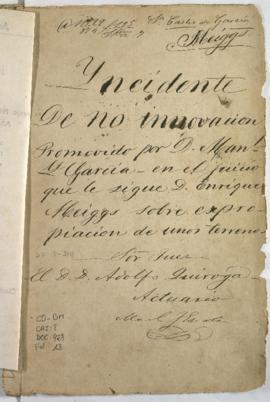 Meiggs
Yncidente
De no innovacion
Promovido por D. Manl
Y Garcia en el juicio
que le sigue D. Enrique
Meiggs sobre expro-
piacion de unos terrenos
Sor Juez
El D. D. Adolfo Quiroga
Actuario
CD-OM
CAJ: 8
DOC: 923
Fol: 13